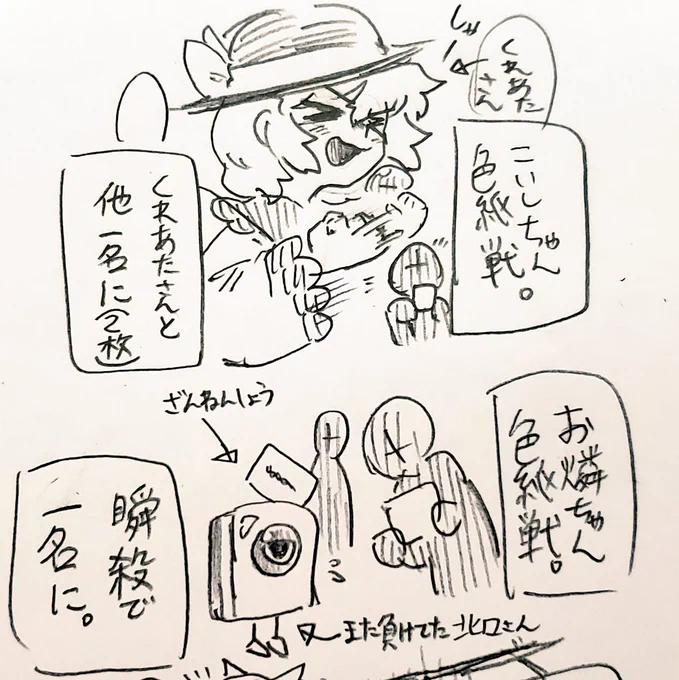 くれあた
さん
しゃー
こいしちゃん
色紙戦。
くれあたさんと
他一名に(2枚)
お燐ちゃん
色紙戦。
ざんねんしょう
瞬殺で
一名に。
また負けてた北口さん